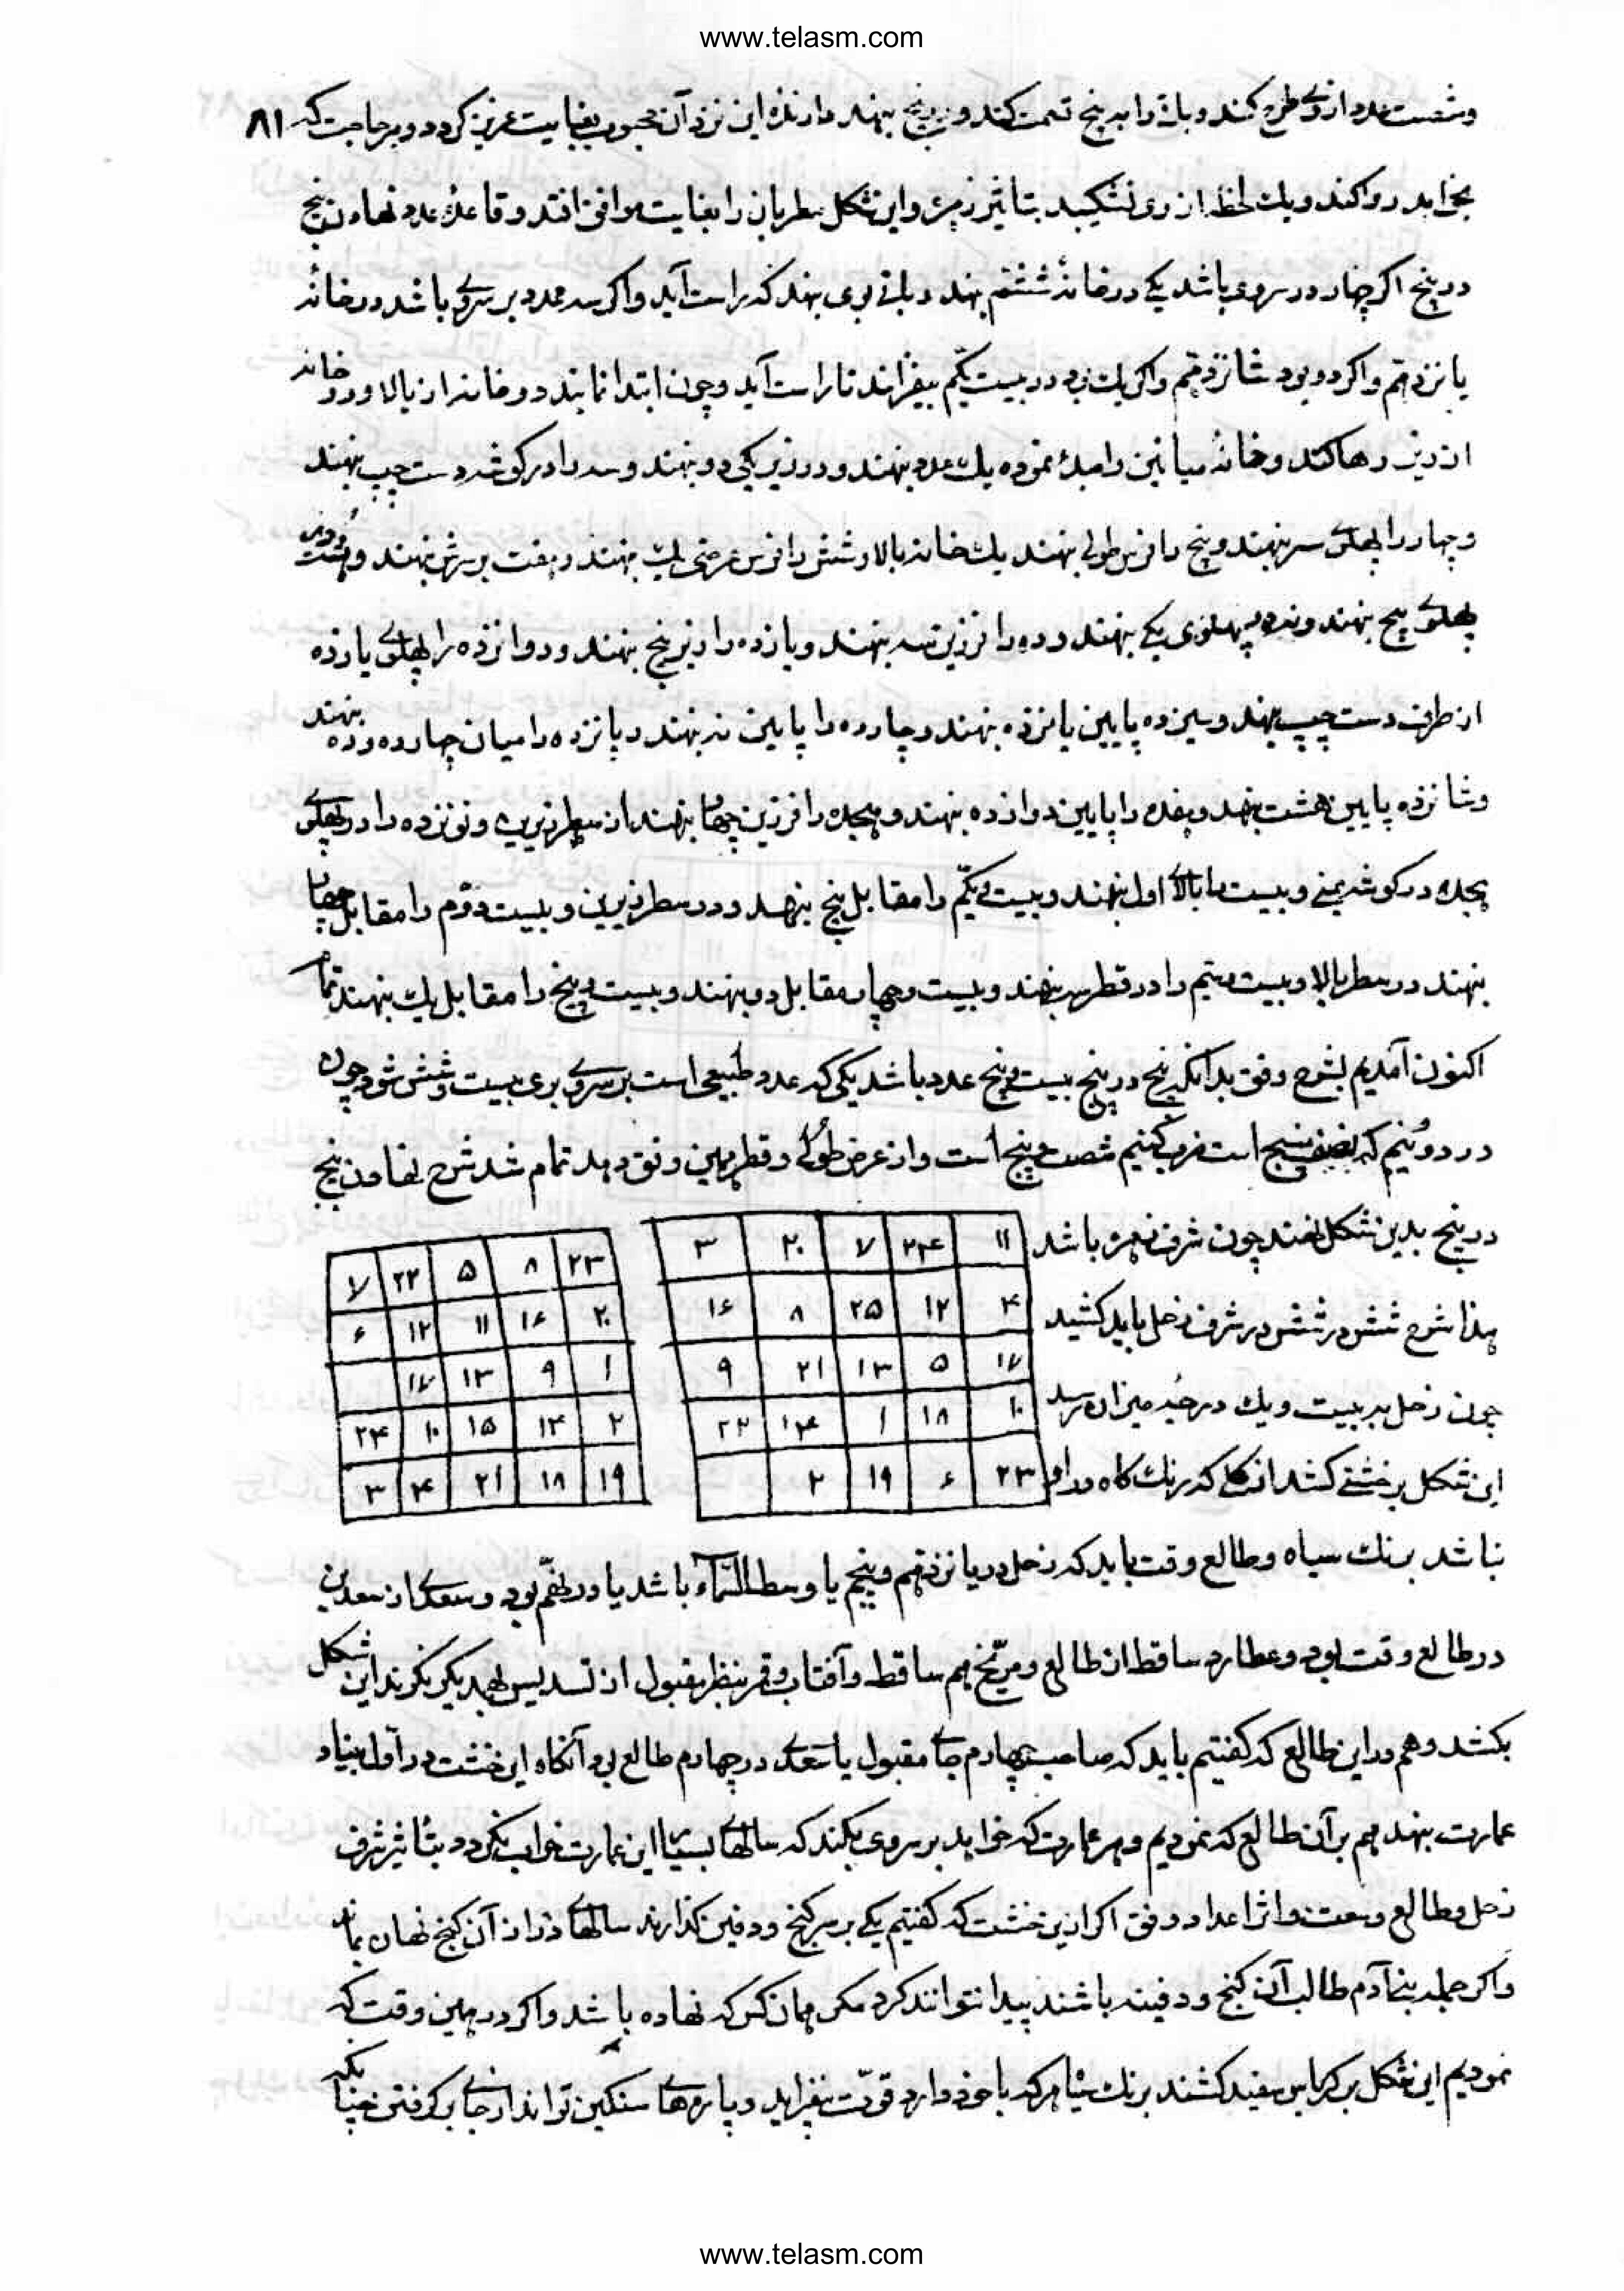 www.telasm.com
وشصت عدد از وی طرح کند و باقی را به پنج قسمت کند و در پنج بنهد دارنده این نزد آن محبوب بغایت عزیز گردد و هر حاجت که ۸۱
بخواهد روا کند و یک لحظه از وی نشکیبد بتاثیر زهره و این شکل مطربان را بغایت موافق افتد و قاعده عدد نهادن پنج
در پنج اگر چهار در سروی باشد یکی در خانهٔ ششم نهد و باقی بوی بنهد که راست آید واگر سه عدد بر سروی باشد در خانهٔ
پانزدهم واگر دو بود شانزدهم واگر یک بود در بیست یکم بیفزاند تا راست آید و چون ابتدا نمایند دو خانه از بالا و دو خانه
از زیر رها کند و خانهٔ میانین را مبدا نموده یک عدد بنهند و در زیر یکی دو بنهند و سه را در گوشه دست چپ بنهند
و چهار را پهلوی سه بنهند و پنج را بنهند یک خانه بالا و شش را یک بنهند و هفت بر سرش بنهند و هشت
پهلوی پنج بنهند و نه را پهلوی یکی بنهند و ده را فرزین سه بنهند و یازده را زیر پنج بنهند و دوازده را پهلوی یازده
از طرف دست چپ بنهد و سیزده پایین یازده بنهند و چارده را پایین نه بنهند و پانزده را میان چهارده و ده بنهند
وشانزده پایین هشت بنهد و هفده را پایین دوازده بنهند و هجده را فرزین چهار بنهند از سطر زیرین و نوزده را در پهلوی
هجده در گوشه یمنی و بیست را بالای اول بنهند و بیست یکم را مقابل پنج بنهد و در سطر زیرین و بیست دوم را مقابل چهار
بنهند در سطر بالا و بیست سیم را در قطر سه بنهند و بیست و چهار مقابل دو بنهند و بیست و پنج را مقابل یک بنهند تمام
اکنون آمدیم بشرح وفق بدانکه پنج در پنج بیست و پنج عدد باشد یکی که عدد طبیعی است بر سر وی بری بیست و شش شود چون
در دو نیم که نصف پنج است ضرب کنیم شصت و پنج است و از عرض طول و قطر همین وفق دهد تمام شد شرح نهادن پنج
در پنج بدین شکل نهند چون شرف زهره باشد
هذا شرح شش در شش در شرف زحل باید کشید
چون زحل به بیست و یک درجه میزان رسد
این شکل بر خشتی کشد از گل که برنک کاه در او
۱۱ ۲۴ ۷ ۲۰ ۳
۴ ۱۲ ۲۵ ۸ ۱۶
۱۷ ۵ ۱۳ ۲۱ ۹
۱۰ ۱۸ ۱ ۱۴ ۲۲
۲۳ ۶ ۱۹ ۲
۲۳ ۸ ۵ ۲۲ ۷
۲۰ ۱۶ ۱۱ ۱۲ ۶
۱ ۹ ۱۳ ۱۷
۲ ۱۴ ۱۵ ۱۰ ۲۴
۱۹ ۱۸ ۲۱ ۴ ۳
نباشد برنک سیاه و طالع وقت باید که زحل در یا نزدهم و پنجم یا وسط السماء باشد یا در نهم بود و سعدی از سعدین
در طالع وقت بود و عطارد ساقط از طالع و مریخ هم ساقط و آفتاب و قمر بنظر مقبول از تسدیس بهم دیگر نگرند این شکل
بکشد و هم در این طالع که گفتیم باید که صاحب چهارم جای مقبول یا سعدی در چهارم طالع بود آنگاه این خشت در اول بنیاد
عمارت بنهد هم بر آن طالع که نمودیم و هر عمارت که خواهد بر سر وی بکند که سالهای بسیار این عمارت خراب نگردد بتاثیر شرف
زحل و طالع وسعت و اثر اعداد وفق اگر ازین خشت که گفتیم یکی بر سر گنج و دفین گذارند سالهای دراز آن گنج نهان بماند
واگر جمله بنی آدم طالب آن گنج و دفینه باشند پیدا نتوانند کرد مگر همان کس که نهاده باشد واگر در همین وقت که
نمودیم این شکل بر کرباس سفید کشند برنک سیاه هر که با خود دارد قوت بیفزاید و پارهای سنگین تواند از جای برگرفتن چنانکه
www.telasm.com